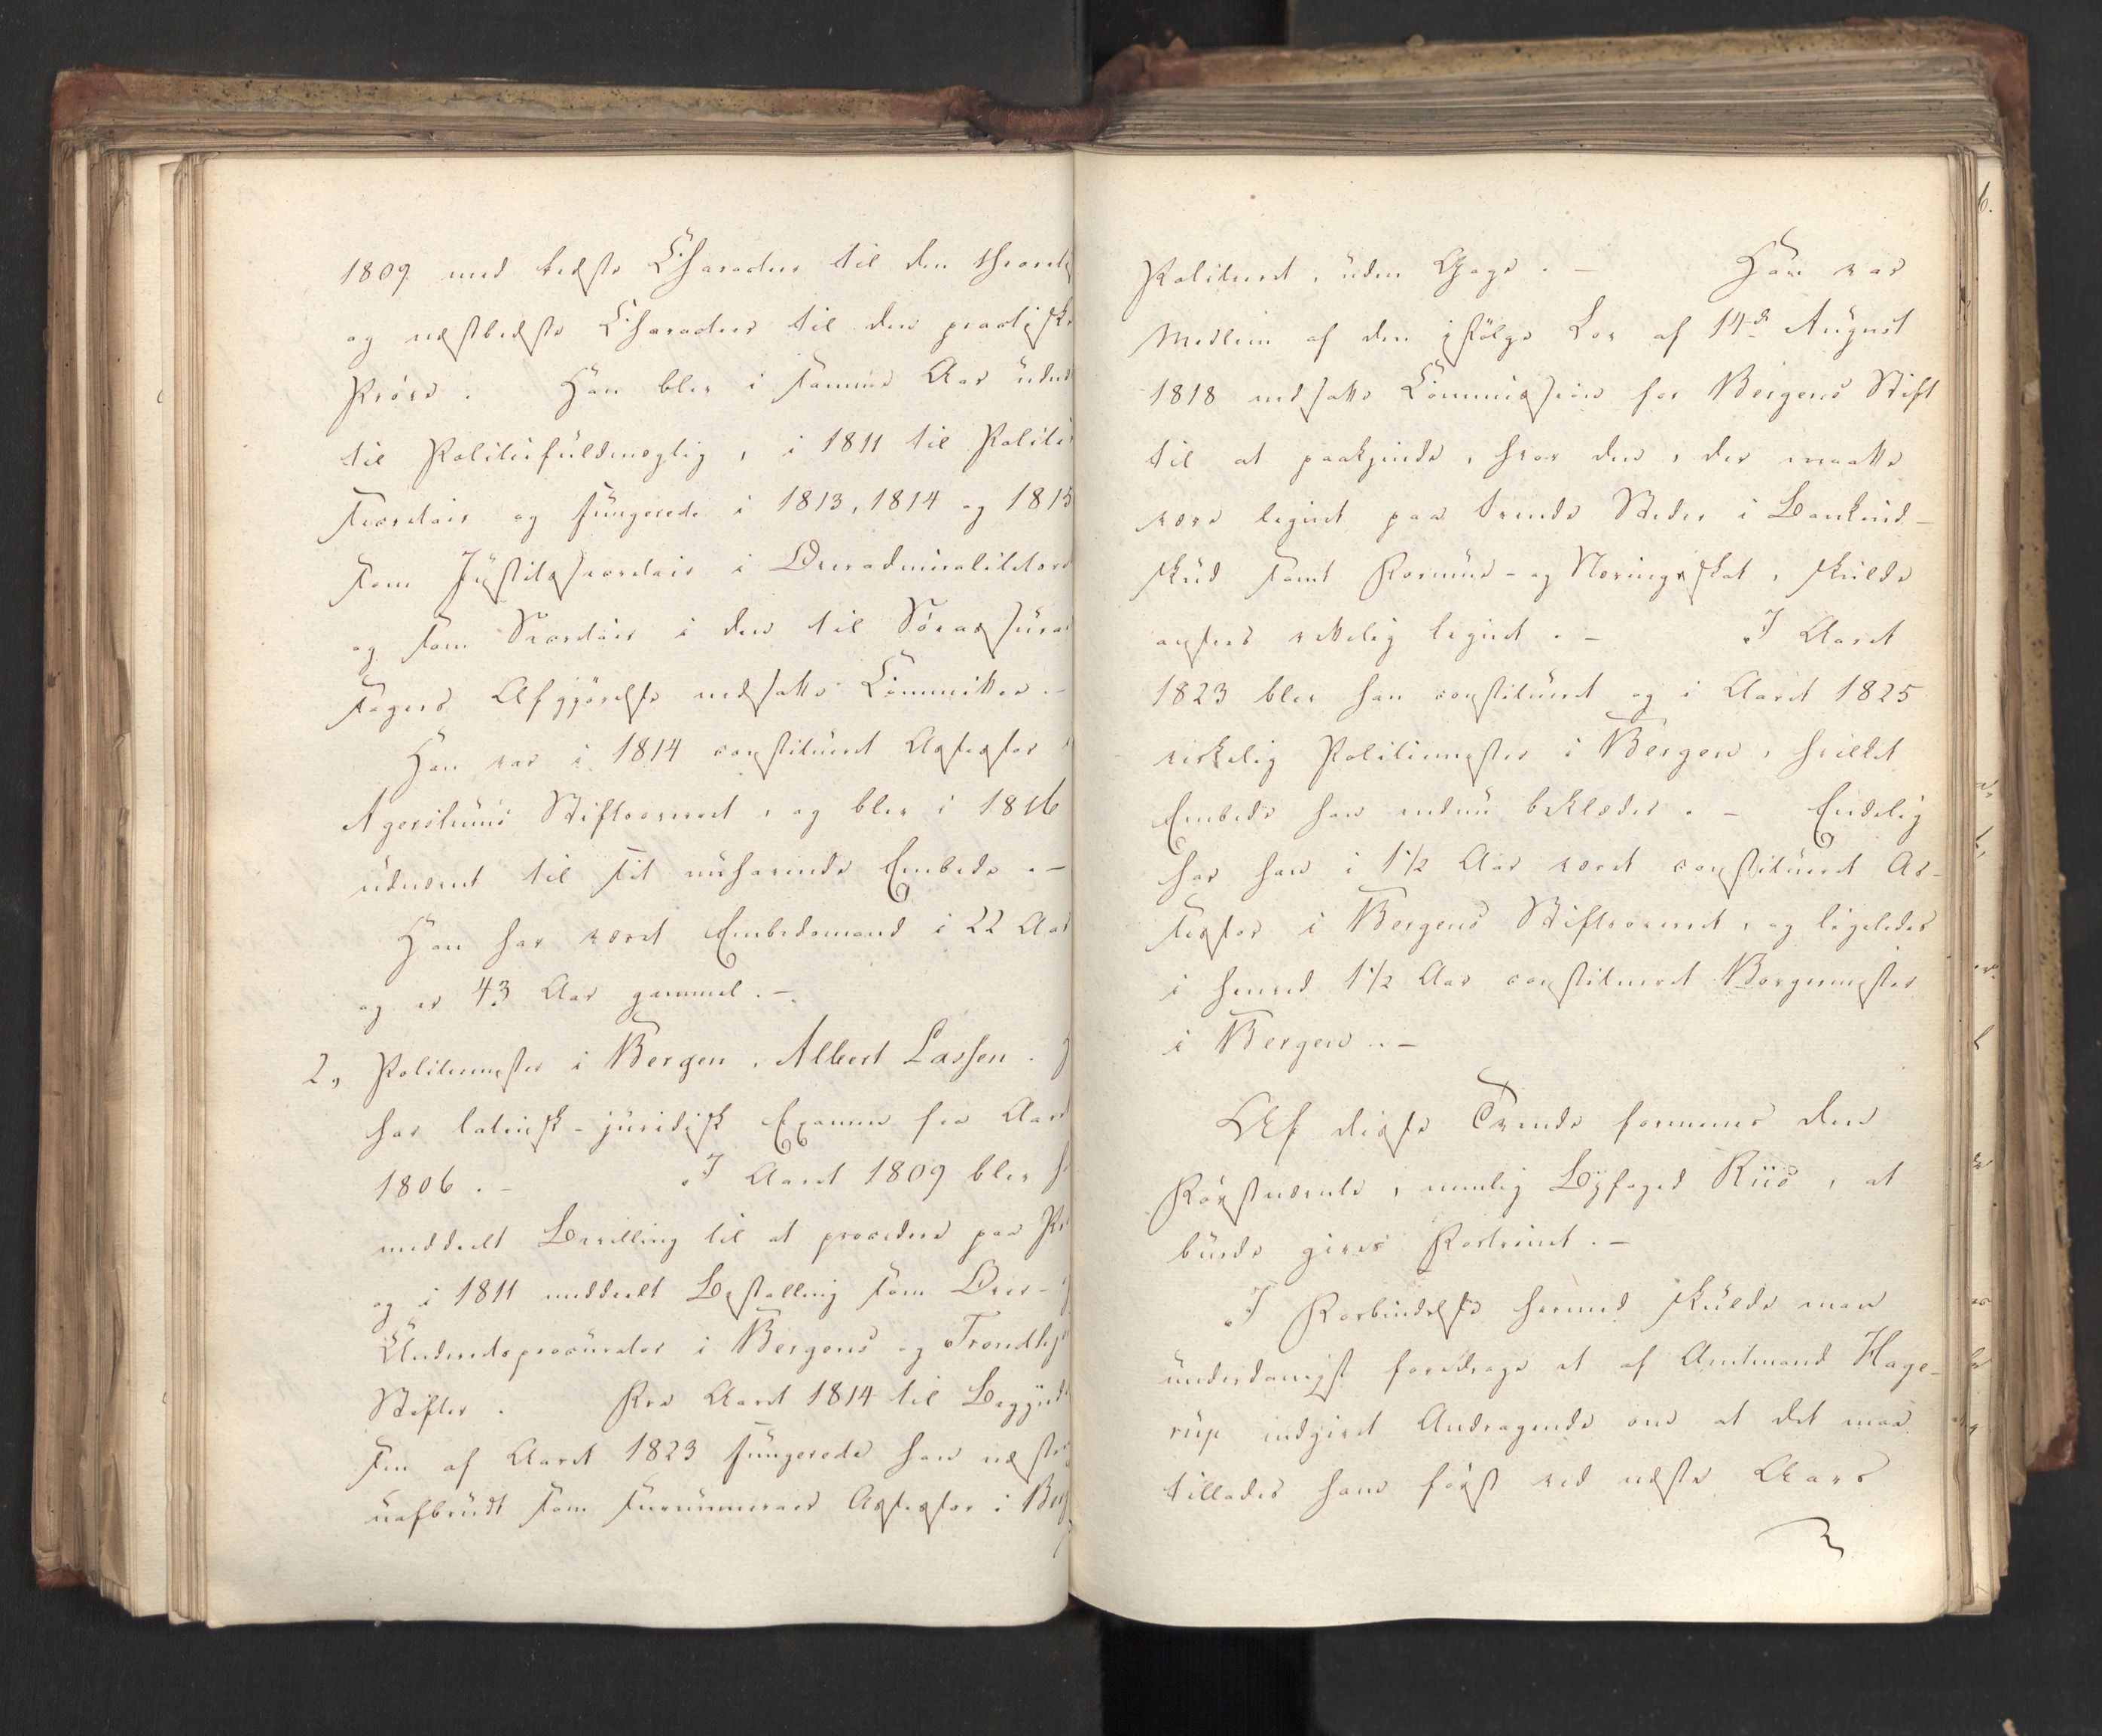 1809 med bedste Characteer til den theoretisk
og næstbedste Characteer til den practiske
Prøve. Han blev i samme Aar udnæ
til Politiefuldmægtig, i 1811 til Politi
secretair og fungerede i 1813, 1814 og 1815
som Justitssecretair i Overadmiralitetsret
og som Secretair i den til Søeassuran
sagers Afgjørelse nedsatte Committee.-
Han var i 1814 constitueret Assessor i
Agershuus Stiftsoverret, og blev i 1816
udnævnt til sit nuhavende Embede.-
Han har været Embedsmand i 22 Aar
og er 43 Aar gammel.-
2, Politiemester i Bergen, Albert Lassen. H
har latinsk-juridisk Examen fra Aaret
1806.- I Aaret 1809 blev h
meddeelt Bevilling til at procedere paa Pr
og i 1811 meddeelt Bestalling som Over- o
Underretsprocurator i Bergens og Trondhj
Stifter. Fra Aaret 1814 til Begynd
sen af Aaret 1823 fungerede han næsten
uafbrudt som surnumerair Assessor i Berg
Politieret, uden Gage.- Han var
Medlem af den ifølge Lov af 14de August
1818 nedsatte Commission for Bergens Stift
til at paakjende, hvor den, der maatte
være lignet paa trende Steder i Bankind-
skud samt Formue- og Næringsskat, skulde
ansees rettelig lignet.- I Aaret
1823 blev han constitueret og i Aaret 1825
virkelig Politiemester i Bergen, hvilket
Embede han endnu beklæder.- Endelig
har han i 1½ Aar været constitueret As-
sessor i Bergens Stiftsoverret, og ligeledes
i henved 1½ Aar constitueret Borgermester
i Bergen.-
Af disse Trende formenes den
Førstnævnte, nemlig Byfoged Riis, at
burde gives Fortrinet.-
I Forbindelse hermed skulde man
underdanigst foredrage et af Amtmand Hage-
rup indgivet Andragende om at det maa
tillades ham først ved næste Aars